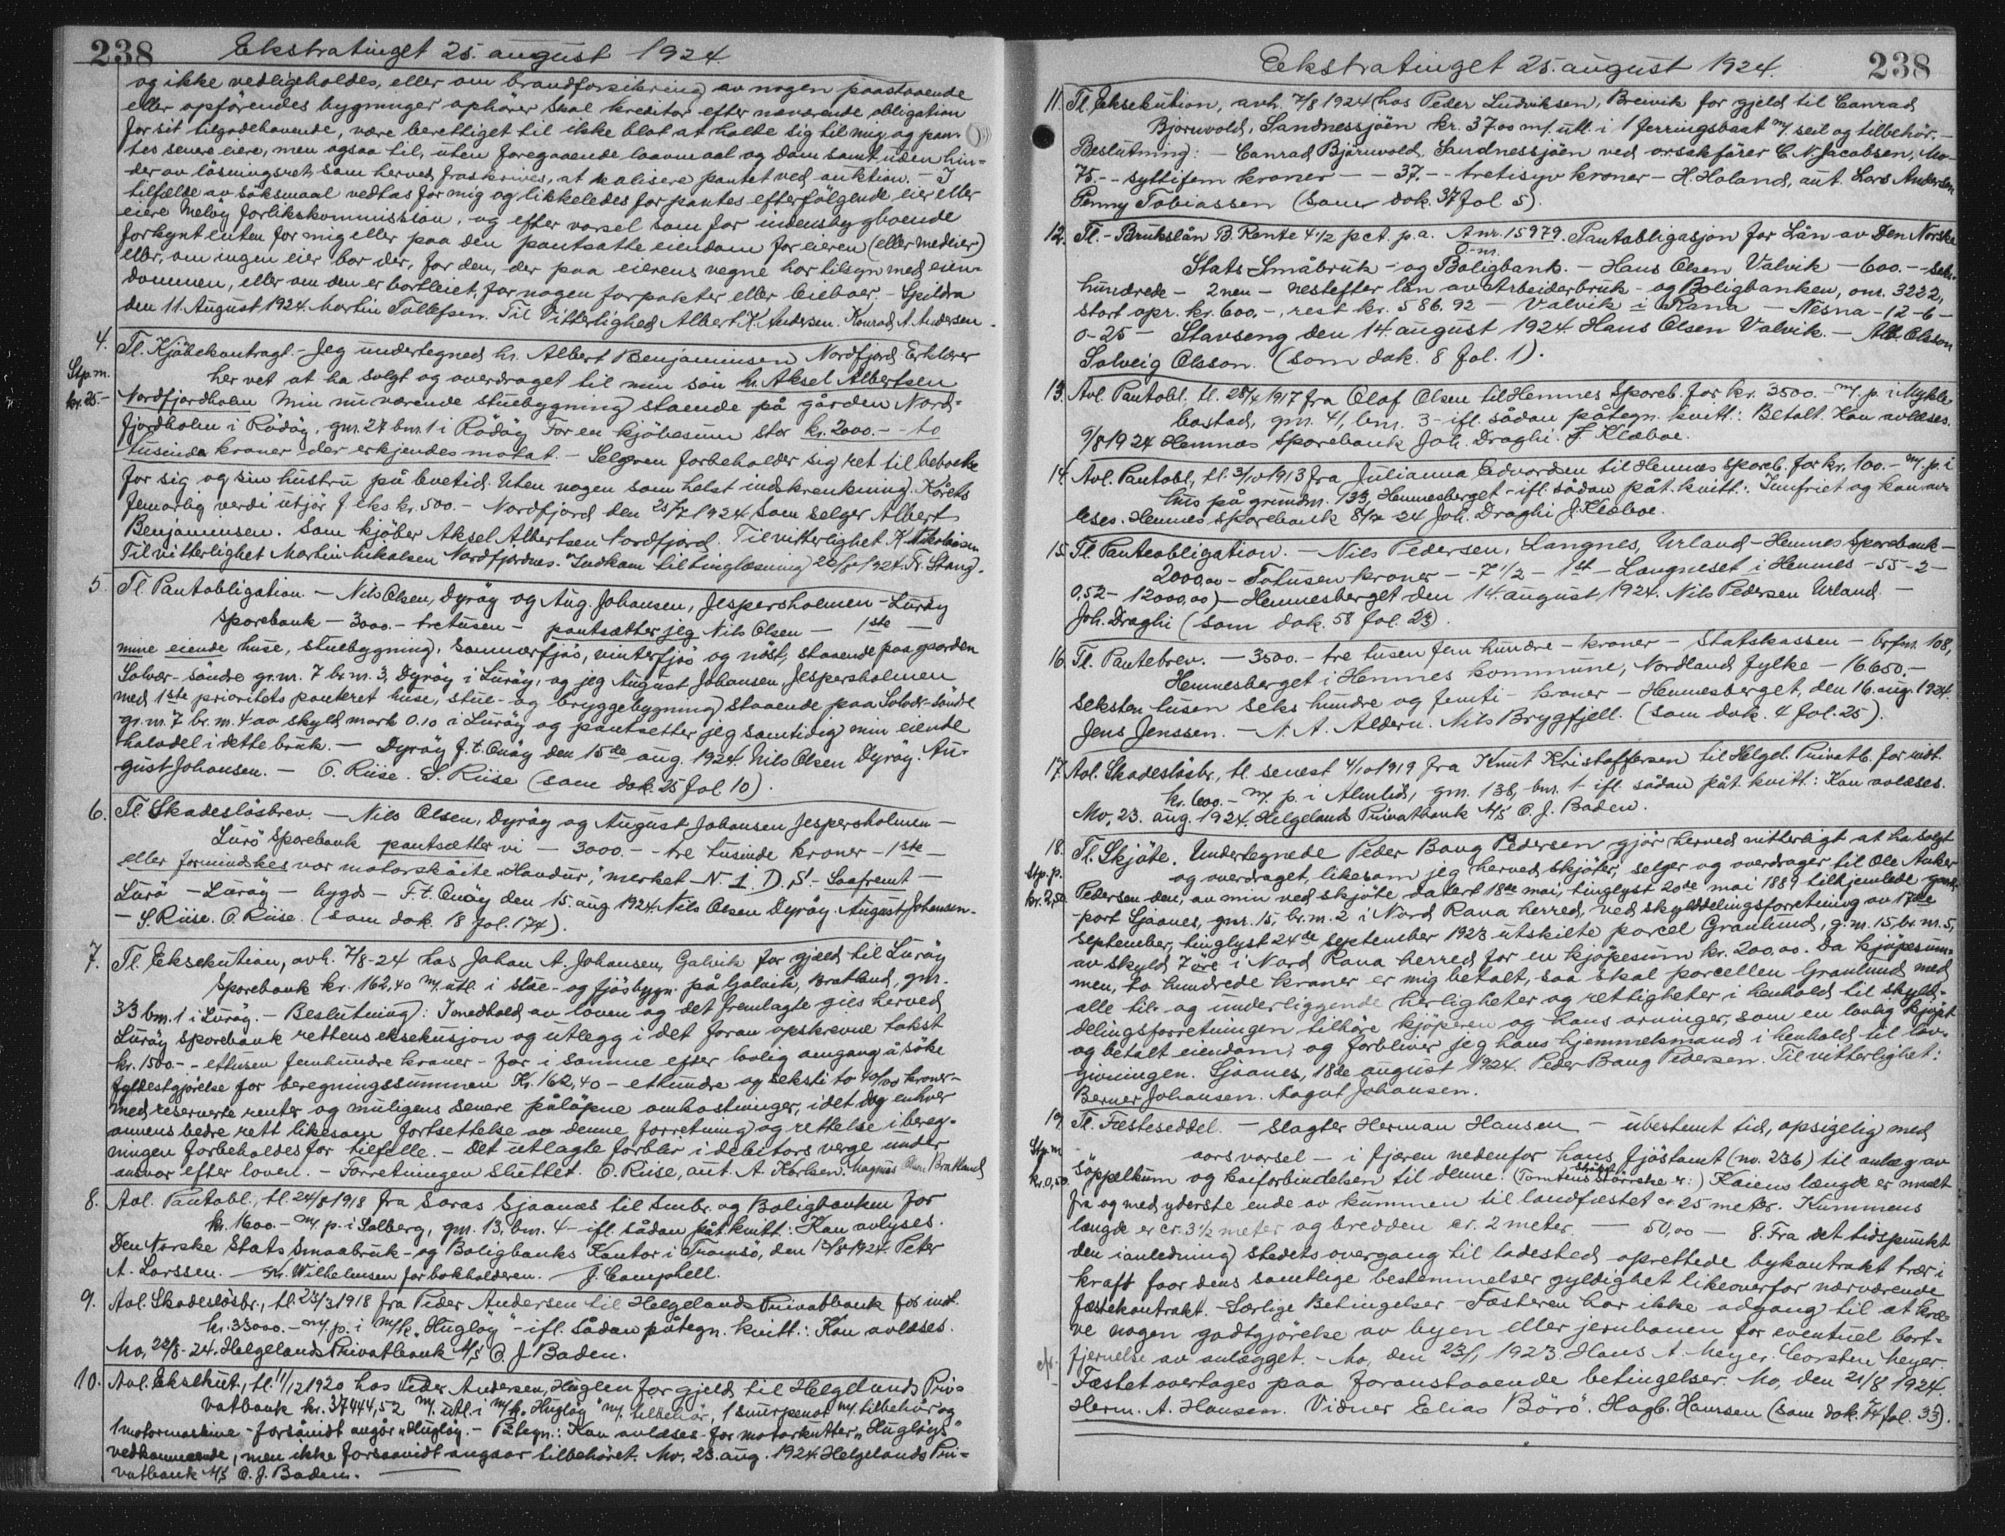 238 Ekstratinget 25. august 1924
og ikke vedligeholdes, eller om brandforsikring av nogen paastaaende
eller opførendes bygninger ophører skal kreditor efter nærværende obligation
for sit tilgodehavende, være berettiget til ikke blot at holde sig til mig og pan-
tes senere eiere, men ogsaa til, uten foregaaende lovmaal og dom samt uden hin-
der av løsningsret, som herved fraskrives, at realisere pantet ved auktion. – I
tilfælde av søksmaal vedtas for mig og likkeledes for pantes efterfølgende eier eller
eiere Meløy forlikskommission, og efter varsel som for indensbygdsboende
forkynt enten for mig eller paa den pantsatte eiendom for eieren (eller medeier)
eller, om ingen eier bor der, for den, der paa eierens vegne har tilsyn med eien-
dommen, eller om den er bortleiet, for nogen forpakter eller leieboer. – Spildra
den 11. August 1924. Martin Tollefsen. Til Vitterlighed Albert K. Andersen. Konrad A. Andersen.
4. Tl. Kjøbekontragt. – Jeg undertegned hr. Albert Benjaminsen Nordfjord Erklærer
Stp. m. her vet at ha solgt og overdraget til min søn hr. Aksel Albertsen
kr. 25.– Nordfjordholm min nu værende stuebygning staende på gården Nord-
fjordholm i Rødøy. gnr. 27 bnr. 1 i Rødøy For en kjøbesum stor kr. 2000.– – to
tusinde kroner der erkjendes motat. – Selgeren forbeholder sig ret til beboelse
for sig og sin hustru på levetid. Uten nogen som helst indskrenkning. Kårets
femårlig verdi utjør f. eks kr. 500.– Nordfjord den 25/7 1924 som selger Albert
Benjaminsen. Som kjøber Aksel Albertsen Nordfjord. Til vitterlighet K. Nikolaisen
Til vitterlighet Martin Mikalsen Nordfjordnes. "Indkom til tinglæsning 22/8 1924. Fr. Stang.
5. Tl. Pantobligation. – Nils Olsen, Dyrøy og Aug. Johansen, Jespersholmen – Lurøy
Sparebank – 3000.– tretusen – pantsætter jeg Nils Olsen – 1ste –
mine eiende huse, stuebygning, sommerfjøs, vinterfjøs og nøst, staaende paa gaarden
Solvær – søndre gr. nr. 7 br. nr. 3, Dyrøy i Lurøy, og jeg August Johansen, Jespersholmen
med 1ste prioritets panteret huse, stue- og bryggebygning staaende paa Solvær – søndre
gr. nr. 7 br. nr. 4 av skyld mark 0.10 i Lurøy og pantsetter jeg samtidig min eiende
halvdel i dette bruk. – Dyrøy f. t. Onøy den 15de aug. 1924. Nils Olsen Dyrøy. Au-
gust Johansen. – O. Riise. S. Riise (som dok. 25 fol. 10).
6. Tl. Skadesløsbrev. – Nils Olsen, Dyrøy og August Johansen Jespersholmen –
Lurö Sparebank pantsætter vi – 3000.– – tre tusinde kroner – 1ste –
eller formindskes vor motorskøite „Havdur,“ merket – N. 1. D. S. – Saafremt –
Lurø – Lurøy – bygd – F. t. Onøy den 15. aug 1924. Nils Olsen Dyrøy. August Johansen.
– S. Riise. O. Riise. (som dok. 18 fol. 174).
7. Tl. Eksekution, avh. 7/8-24 hos Johan A. Johansen, Galvik for gjæld til Lurøy
Sparebank kr. 162,40 m/ utl. i stue- og fjøsbygn. på Galvik, Bratland, gnr.
33 bnr. 1 i Lurøy. – Beslutning: I medhold av loven og det fremlagte gies herved
Lurøy Sparebank rettens eksekusjon og utlegg i det foran opskrevne takst
kr. 1500.– – ettusen femhundre kroner – for i samme efter lovlig omgang å søke
fyldestgjørelse for beregningssummen Kr. 162,40 – ethundre og seksti to 40/00 kroner –
med reserverte renter og muligens senere påløpne omkostninger, idet dog enhver
annens bedre rett likesom fortsettelse av denne forretning og rettelse i bereg-
ningen forbeholdes for tilfelle. – Det utlagte forblir i debitors verge under
ansvar efter loven. – Forretningen sluttet. O. Riise, aut. A. Karlsen. Magnus Olsen Bratland
8. Avl. Pantobl., tl. 24/8 1918 fra Saras Sjaanæs til Smbr. og Boligbanken for
kr. 1600.– m/ p. i Solberg, gnr. 13, bnr. 4 – ifl. sådan påt. kvitt.: Kan avlyses.
Den Norske Stats Smaabruk- og Boligbanks Kontor i Tromsø, den 13/8 1924. Peter
A. Larssen. – Kr. Wilhelmsen for bokholderen. – J. Camphell.
9. Avl. Skadesløsbr., tl. 23/3 1918 fra Peder Andersen til Helgelands Privatbank for indt.
kr. 33000.– m/ p. i m/k „Hugløy“ – ifl. sådan påtegn. kvitt.: Kan avlæses.
Mo, 22/8-24. Helgelands Privatbank A/S O. J. Baden.
10. Avl. Eksekut., tl. 11/12 1920 hos Peder Andersen, Huglen for gjeld til Helgelands Pri-
vatbank kr. 37444,52 m/ utl. i m/k „Hugløy“ m/ tilbehør, 1 snurpenot m/ tilbehør og
1 motormaskine – forsåvidt angår „Hugløy.– Påtegn.: Kan avlæses for motorkutter „Hugløys“
vedkommende, men ikke forsaavidt angaar tilbehøret. Mo, 23. aug. 1924. Helgelands Pri-
vatbank A/S O. J. Baden.
Ekstratinget 25. august 1924. 238
11. Tl. Eksekution, avh. 7/8 1924 hos Peder Ludviksen, Breivik for gjeld til Conrad
Bjørnvold, Sandnessjøen kr. 37.00 m/ utl. i 1 færingsbaat m/ seil og tilbehør. –
Beslutning: – Conrad Bjørnvold, Sandnessjøen ved orsakfører C. N. Jacobsen, Mo –
75 – – syttifem kroner – – 37. – – tretisyv kroner – H. Haland, aut. Lars Andersen
Penny Tobiassen (som dok. 37 fol 5).
12. Tl. – Brukslån B. Rente 4 1/2 pct. p. a. A nr. 15979. Pantobligasjon for Lån av Den Norske
Stats Småbruk- og Boligbank. – Hans Olsen Valvik – 600.– – seks-
hundrede – 2nen – nestefter lån av Arbeiderbruk- og Boligbanken, onr. 3222,
stort opr. kr. 600,–, rest kr. 586.92 – Valvik i Rana – Nesna – 12 – 6 –
0-25 – Stavseng den 14 august 1924 Hans Olsen Valvik. – Alb. Olsson
Solveig Olsson. (som dok. 8 fol. 1).
13. Avl. Pantobl. tl. 28/4 1917 fra Olaf Olsen til Hemnes Spareb. for kr. 3500.– m/ p. i Mykle-
bostad, gnr. 41, bnr. 3 – ifl. sådan påtegn. kvitt.: Betalt. Kan avlæses.
9/8 1924 Hemnæs Sparebank Joh. Draghi. J. Klæboe.
14. Avl. Pantobl, tl. 3/10 1913 fra Julianna Edvardsen til Hemnæs Spareb. for kr. 100.– m/ p. i
hus på grundnr. 133, Hemnesberget – ifl. sådan påt. kvitt.: Innfriet og kan av-
leses. Hemnes Sparebank 8/8 24 Joh. Draghi J. Klæboe.
15. Tl. Panteobligation. – Nils Pedersen, Langnes, Urland – Hemnes Sparebank –
2000,00 – Totusen kroner – – 7 1/2 – 1st – Langneset i Hemnes – 55 – 2 –
0,52 – 12000,00) – Hemnesberget den 14. august 1924. Nils Pedersen Urland –
Joh. Draghi (som dok. 58 fol. 23).
16. Tl. Pantebrev. – 3500.– tre tusen fem hundre – kroner – Statskassen – brfnr. 108,
Hemnesberget i Hemnes kommune, Nordland fylke – 16650.–
seksten tusen seks hundre og femti – kroner – Hemnesberget, den 16. aug. 1924.
Jens Jenssen. – N. A. Aldern. Nils Brygfjell. (som dok. 4 fol. 25).
17. Avl. Skadesløsbr., tl. senest 4/10 1919 fra Knut Kristoffersen til Helgel. Privatb. for indt.
kr. 600.– m/ p. i Almlid, gnr. 138, bnr. 1 – ifl. sådan påt. kvitt.: Kan avlæses.
Mo, 23. aug. 1924. Helgelands Privatbank A/S O. J. Baden.
18. Tl. Skjøte. Undertegnede Peder Bang Pedersen gjør herved vitterligt at ha solgt
Stp. p. og overdraget, likesom jeg herved skjøter, selger og overdrager til Ole Anker
kr. 2,50. Pedersen den, av min ved skjøte datert 18de mai, tinglyst 20de mai 1889 tilhjemlede gards-
part Sjaanes, gnr. 15, br. nr. 2 i Nord Rana herred, ved skylddelingsforretning av 17de
september, tinglyst 24de september 1923 utskilte parcel Granlund, g. nr. 15, br. nr. 5,
av skyld 7 øre i Nord Rana herred for en kjøpesum kr. 200,00. Da kjøpesum-
men, to hundrede kroner er mig betalt, saa skal parcellen Granlund med
alle til- og underliggende herligheter og rettigheter i henhold til skyld-
delingsforretningen tilhøre kjøperen og hans arvinger, som en lovlig kjøpt
og betalt eiendom, og forbliver jeg hans hjemmelsmand i henhold til lov-
givningen. Sjaanes, 18de august 1924. Peder Bang Pedersen. Til vitterlighet:
Berner Johansen. Aagot Johansen.
19. Tl. Fæsteseddel. – Slagter Herman Hansen – ubestemt tid, opsigelig med
Stp. m. aars varsel – i fjæren nedenfor hans fjøstomt (no. 236) til anlæg av
kr. 0,50. søppelkum og kaiforbindelsen til denne. (Tomtens størrelse er:) Kaiens længde er maalt
fra og med yderste ende av kummen til landfæstet cr. 25 meter. Kummens
længde er cr. 3 1/2 meter og bredden cr. 2 meter. – 50,00 – 8. Fra det tidspunkt
den i anledning stedets overgang til ladested oprettede bykontrakt trær i
kraft faar dens samtlige bestemmelser gyldighet likeoverfor nærværende
fæstekontrakt. – Særlige Betingelser – Fæsteren har ikke adgang til at kræ-
ve nogen godtgjørelse av byen eller jernbanen for eventuel bort-
fjernelse av anlægget. – Mo, den 23/1 1923 Hans A. Meyer. Corsten Meyer.
– Fæstet overtages paa foranstaaende betingelser. Mo, den 21/8 1924.
Herm. A. Hansen. Vidner Elias Börö. Hagb. Hansen (som dok. 14 fol. 33).